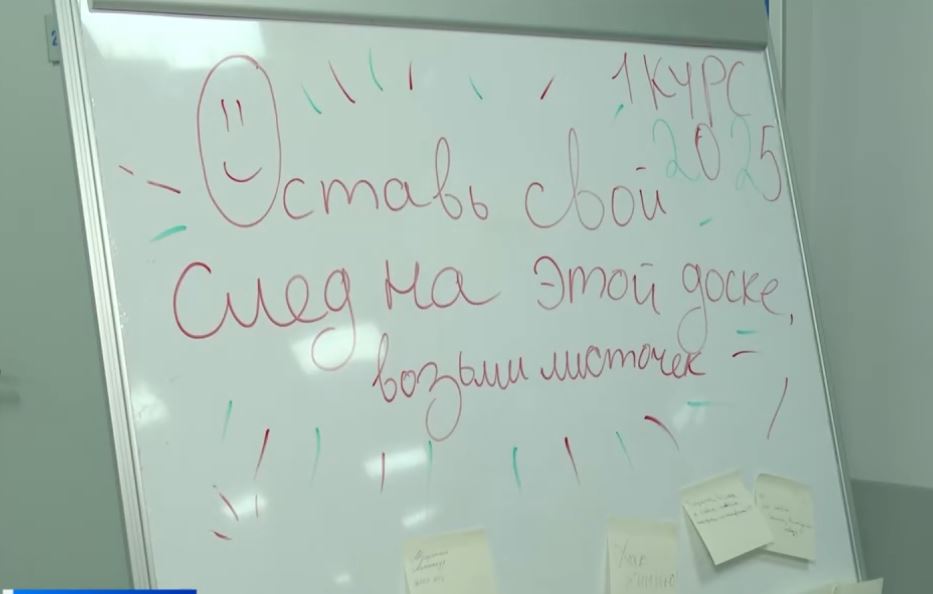 1 КУРС
2025
Оставь свой
след на этой доске,
возьми листочек